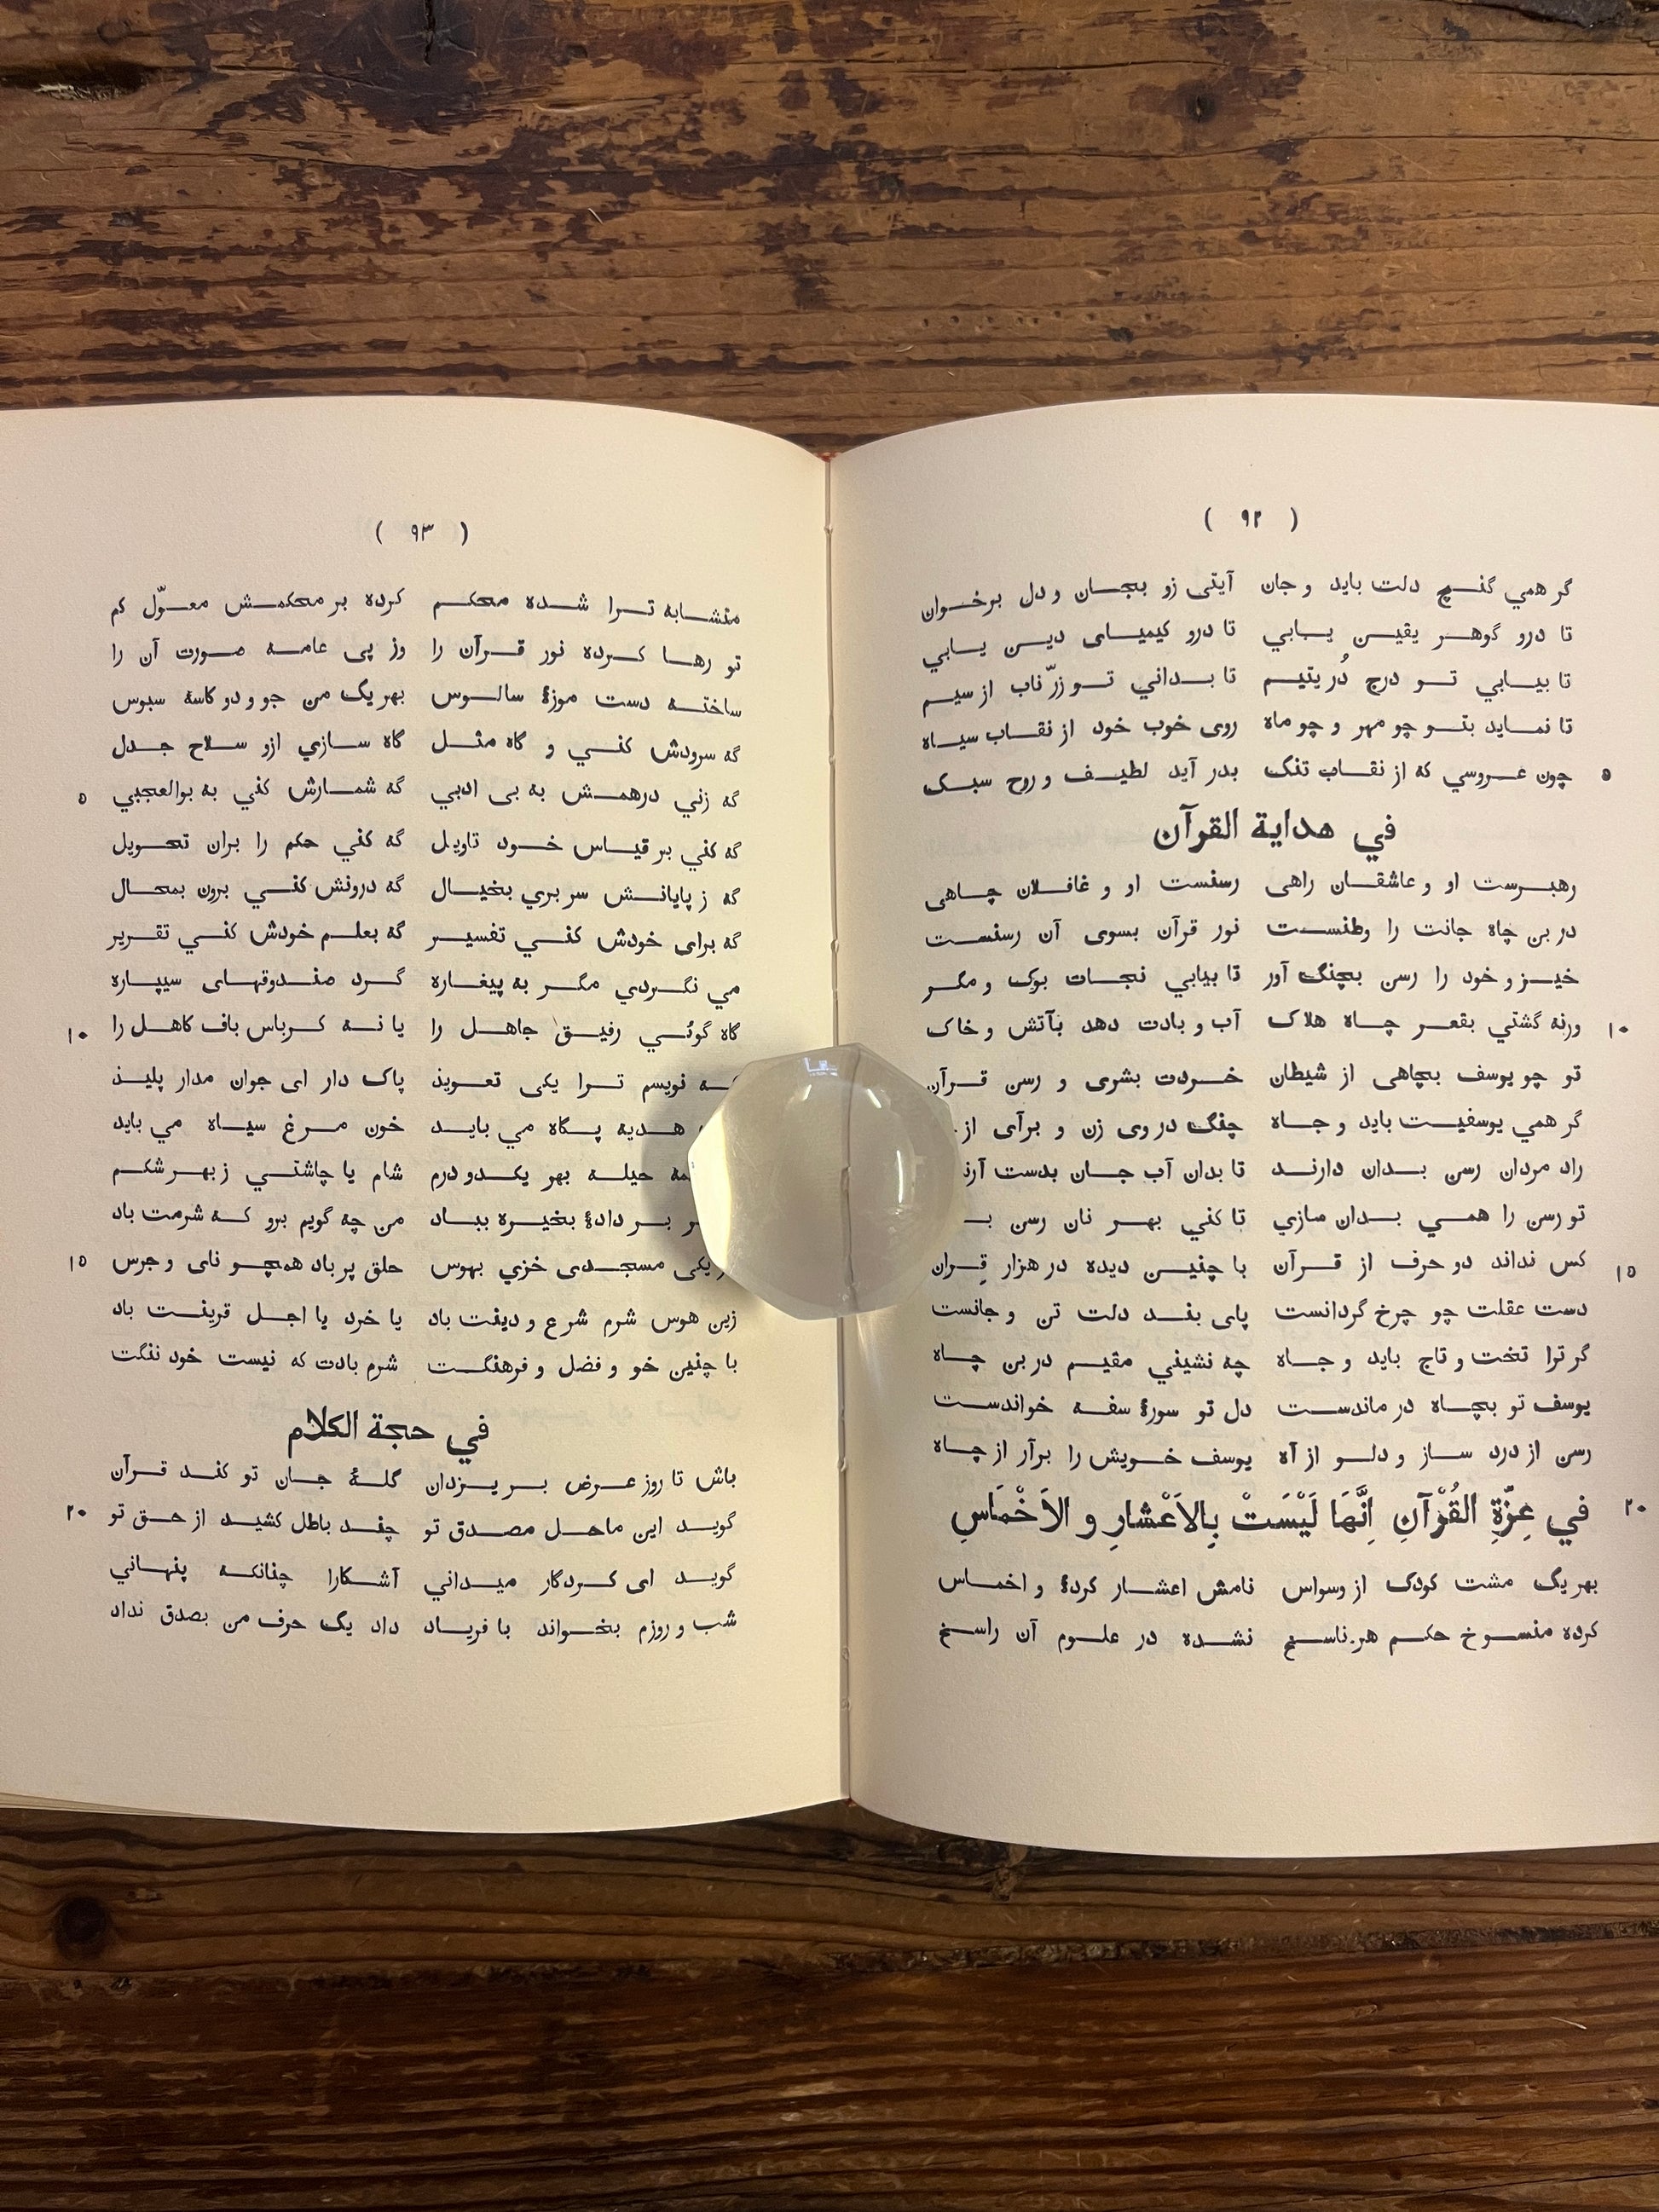 ( ۹۲ )
گر همي گنج دلت باید و جان آیتی زو بجان و دل برخوان
تا درو گوهر یقین یابي تا درو کیمیای دین یابي
تا بیابي تو درج دُر یتیم تا بداني تو زرّ ناب از سیم
تا نماید بتو چو مهر و چو ماه روی خوب خود از نقاب سیاه
چون عروسي که از نقاب تنگ بدر آید لطیف و روح سبک ۵
في هدایة القرآن
رهبرست او و عاشقان راهی رسنست او و غافلان چاهی
در بن چاه جانت را وطنست نور قرآن بسوی آن رسنست
خیز و خود را رسن بچنگ آور تا بیابي نجات بوک و مگر
ورنه گشتي بقعر چاه هلاک آب و بادت دهد بآتش و خاک ۱۰
تو چو یوسف بچاهی از شیطان خردت بشری و رسن قرآن
گر همي یوسفیت باید و جاه چنگ در وی زن و برآی از
راد مردان رسن بدان دارند تا بدان آب جان بدست آرند
تو رسن را همي بدان سازي تا کني بهر نان رسن
کس نداند دو حرف از قرآن با چنین دیده در هزار قِران ۱۵
دست عقلت چو چرخ گردانست پای بند دلت تن و جانست
گر ترا تخت و تاج باید و جاه چه نشیني مقیم در بن چاه
یوسف تو بچاه در ماندست دل تو سورهٔ سفه خواندست
رسن از درد ساز و دلو از آه یوسف خویش را برآر از چاه
في عِزّةِ القُرْآنِ اِنَّهَا لَیْسَتْ بِالاَعْشارِ و الاَخْمَاسِ ۲۰
بهر یگ مشت کودک از وسواس نامش اعشار کردهٔ و اخماس
کرده منسوخ حکم هر ناسخ نشده در علوم آن راسخ
( ۹۳ )
متشابه ترا شده محکم کرده بر محکمش معوّل کم
تو رها کرده نور قرآن را وز پی عامه صورت آن را
ساخته دست موزهٔ سالوس بهر یگ من جو و دو کاسهٔ سبوس
گه سرودش کني و گاه مثل گاه سازي ازو سلاح جدل
گه زني درهمش به بی ادبي گه شمارش کني به بوالعجبي ۵
گه کني بر قیاس خود تاویل گه کني حکم را بران تحویل
گه ز پایانش سر بري بخیال گه درونش کني برون بمحال
گه برای خودش کني تفسیر گه بعلم خودش کني تقریر
مي نگردي مگر به پیغاره گرد صندوقهای سیپاره
گاه گوئي رفیق جاهل را یا نه کرباس باف کاهل را ۱۰
که نویسم ترا یکی تعویذ پاک دار ای جوان مدار پلیذ
هدیه پگاه مي باید خون مرغ سیاه مي باید
حیله بهر یکدو درم شام یا چاشتي ز بهر شکم
بر دادهٔ بخیره بباد من چه گویم برو که شرمت باد
یکی مسجدی خزي بهوس حلق پر باد همچو نای و جرس ۱۵
زین هوس شرم شرع و دینت باد یا خرد یا اجل قرینت باد
با چنین خو و فضل و فرهنگت شرم بادت که نیست خود ننگت
في حجة الکلام
باش تا روز عرض بر یزدان گلهٔ جان تو کند قرآن
گوید این ماحل مصدق تو چند باطل کشید از حق تو ۲۰
گوید ای کردگار میداني آشکارا چنانکه پنهاني
شب و روزم بخواند با فریاد داد یگ حرف من بصدق نداد